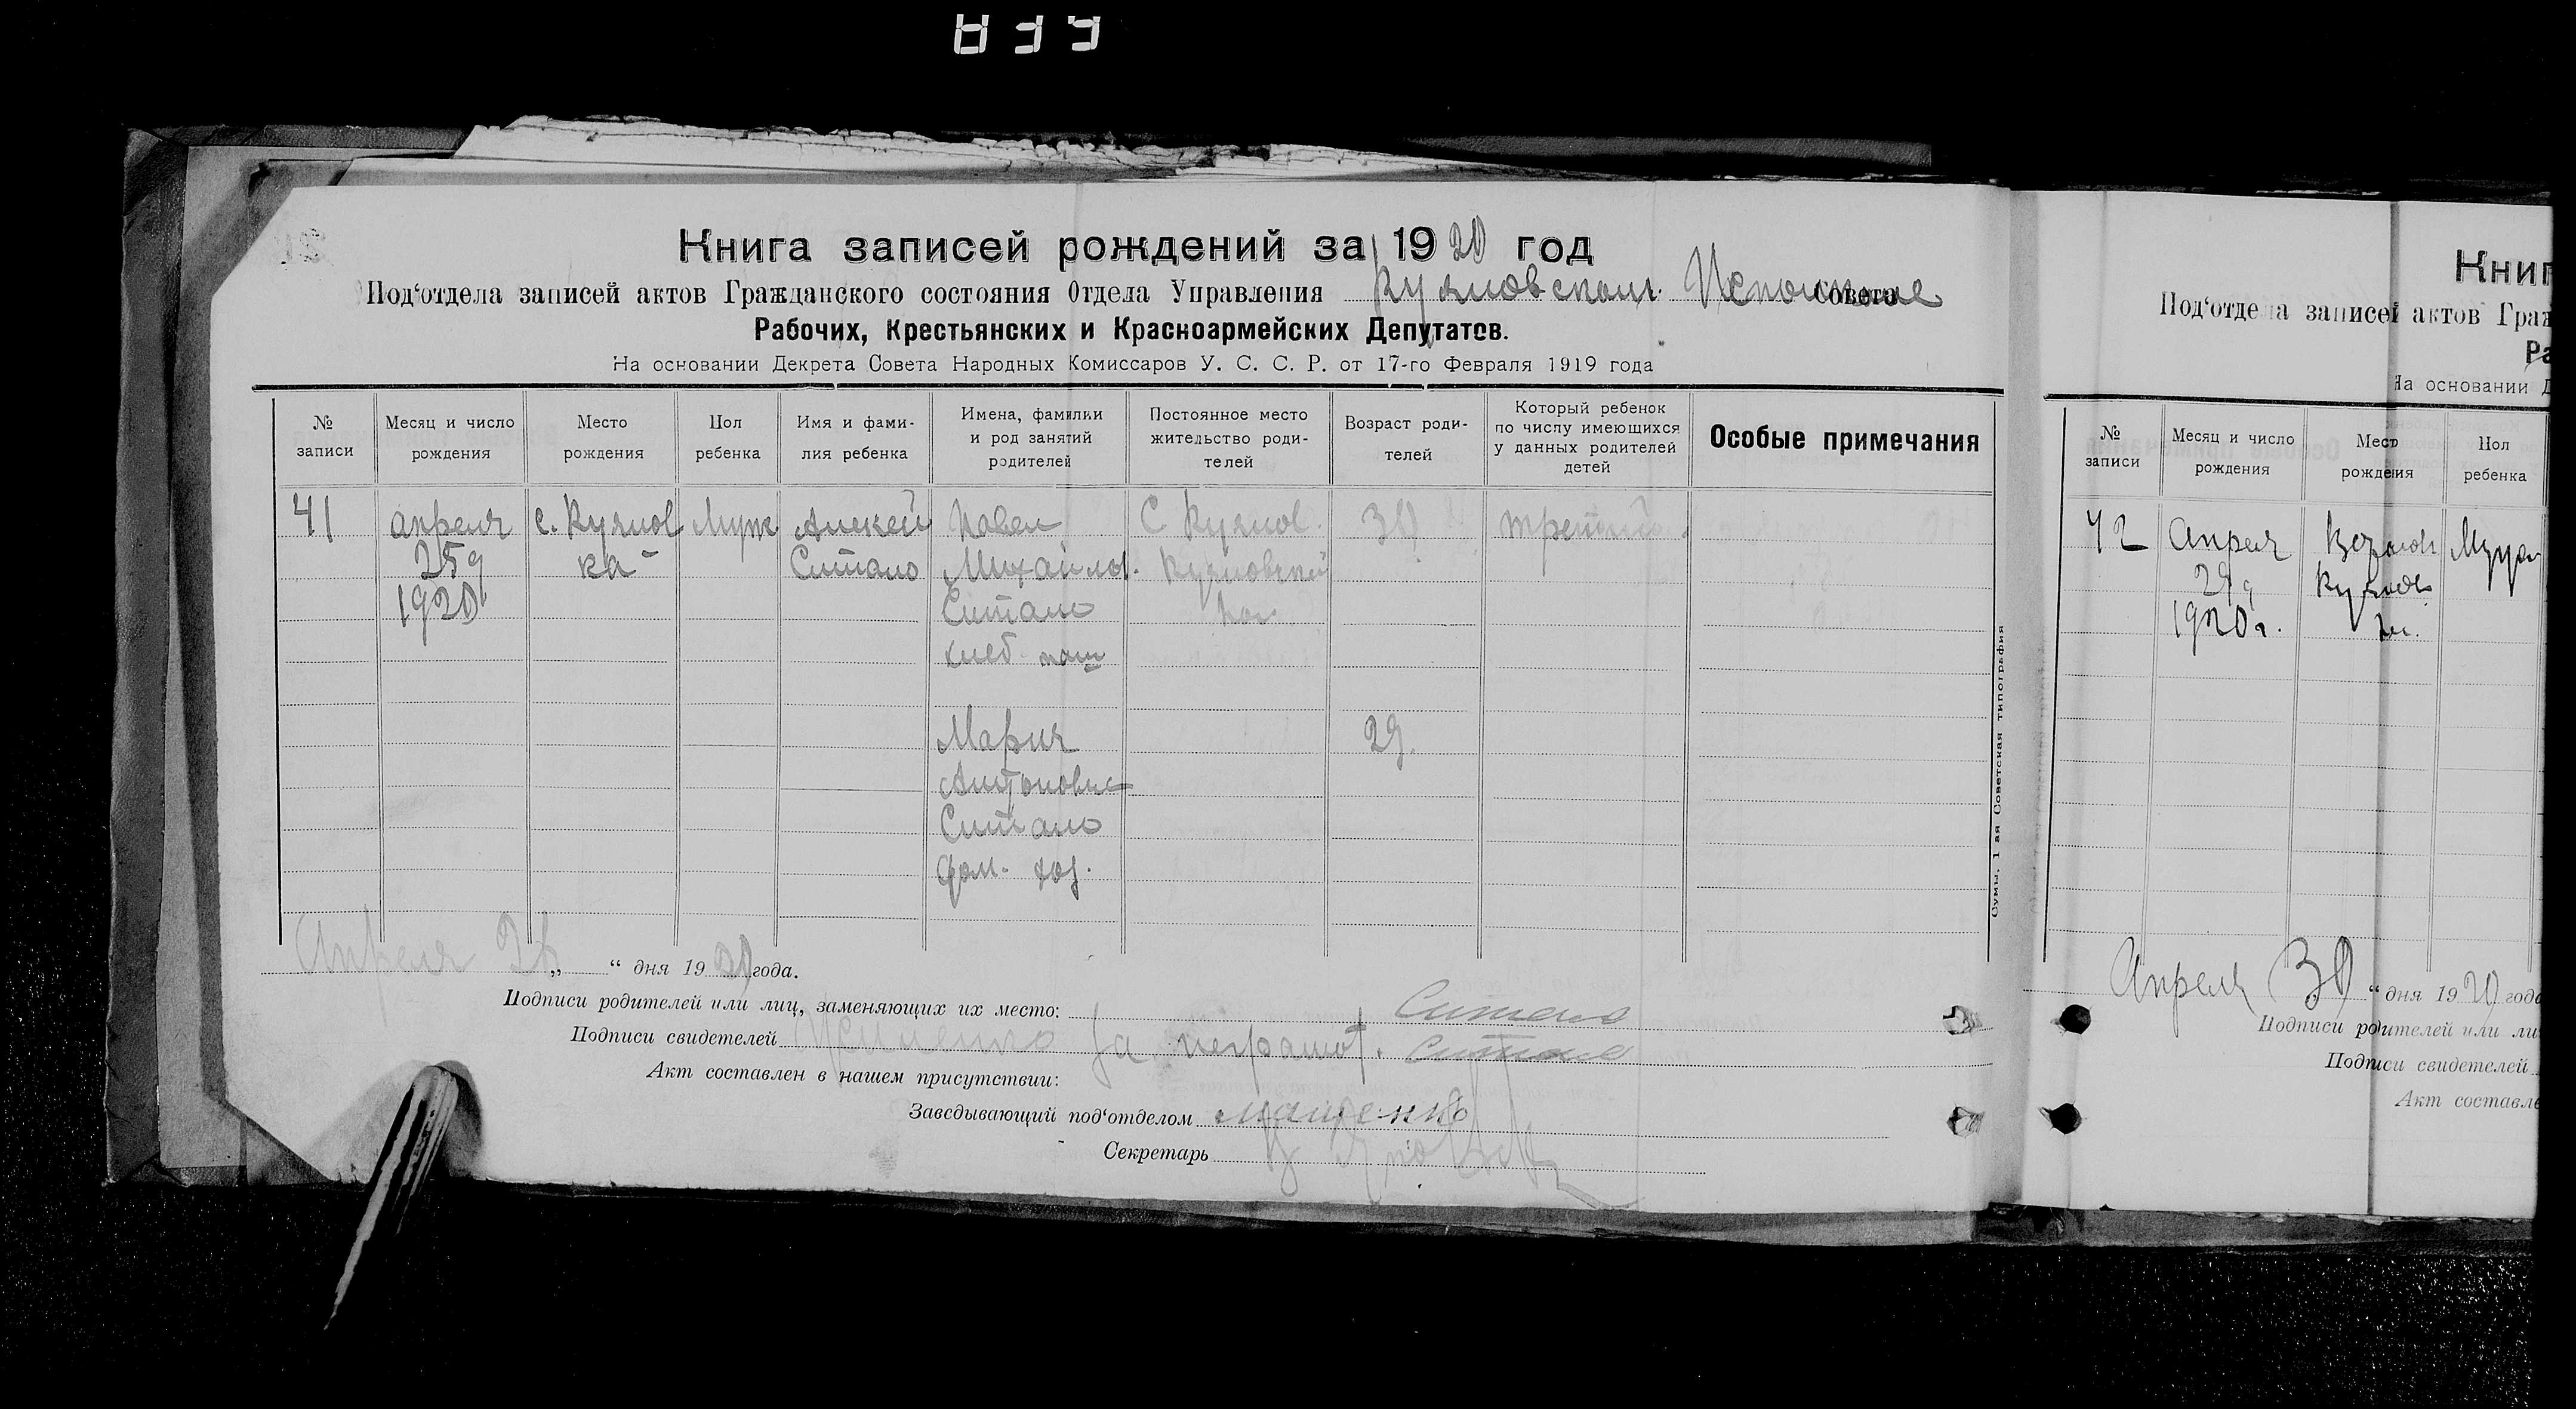 839
Книга записей рождений за 1920 год
Под‘отдела записей актов Гражданского состояния Отдела Управления Совета
Рабочих, Крестьянских и Красноармейских Депутатов.
На основании Декрета Совета Народных Комиссаров У. С. С. Р. от 17-го Февраля 1919 года
№ записи
Месяц и число рождения
Место рождения
Пол ребенка
Имя и фами-
лия ребенка
Имена, фамилии
и род занятий
родителей
Постоянное место
жительство роди-
телей
Возраст роди-
телей
Который ребенок
по числу имеющихся
у данных родителей
детей
Особые примечания
41
апреля
25
1920
ка
Муж
Алексей
Ситало
Павел
Михайлов.
Ситало
хлеб. паш
С
30
третий
Мария
Антоновна
Ситало
дом. хоз.
29.
Апреля „ “ дня 1920 года.
Подписи родителей или лиц, заменяющих их место:
Подписи свидетелей За неграмот.
Акт составлен в нашем присутствии:
Заведывающий под‘отделом
Секретарь
Сумы, 1 ая Советская типография
Книг
Под‘отдела записей актов Граж
Ра
На основании Д
№ записи
Месяц и число
рождения
Мест
рождения
Пол
ребенка
42
Апреля
29
1920 г.
Апреля 30 “ дня 1920 года
Подписи родителей или ли
Подписи свидетелей
Акт составле